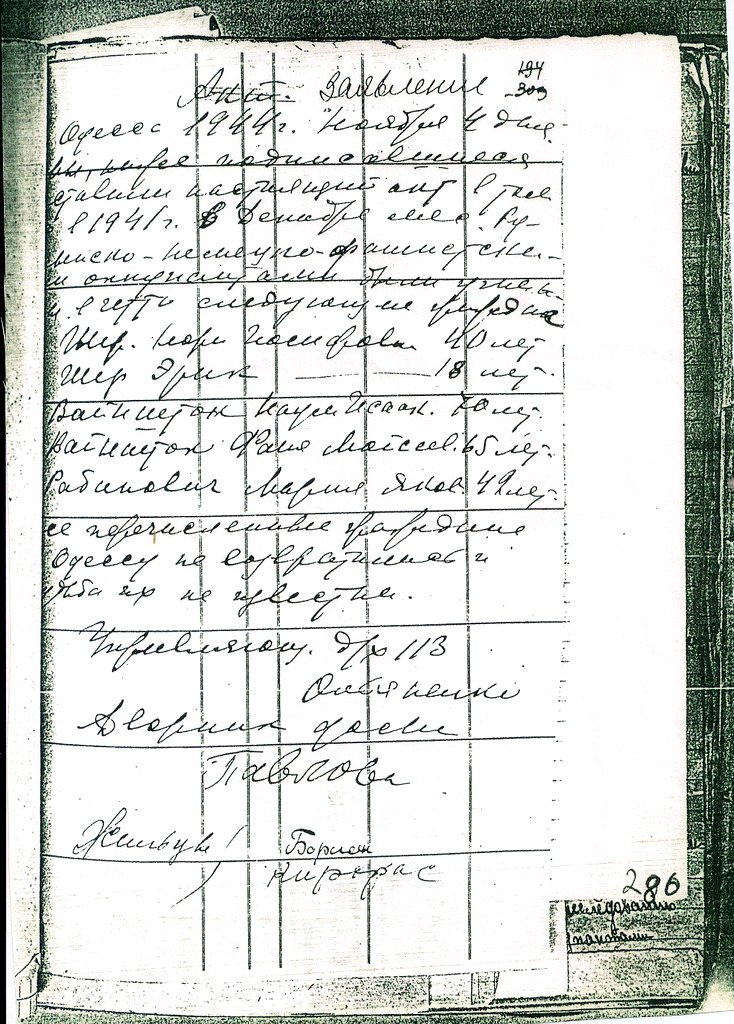 Акт. Заявление
194
309
Одесса 1944 г. Ноября 4 дня.
мы, ниже подписавшиеся
ставили настоящий акт в том
в 1941 г. в Декабре м-це Ру-
мынско-немецко-фашистски-
и оккупантами были угнан-
ы в гетто следующие граждане
Шер. Иосифовн. 40 лет
Шер Эрик 18 лет.
Вайншток Наум Исаак. 70 лет.
Вайншток Фаня Моисеев. 65 лет.
Рабинович Мария Яков. 42 лет.
се перечисленные граждане
Одессу не возвратились и
удьба их не известна.
Управляющ. д/х 113
Дворник
Павлова
Жильцы
Борисен
286